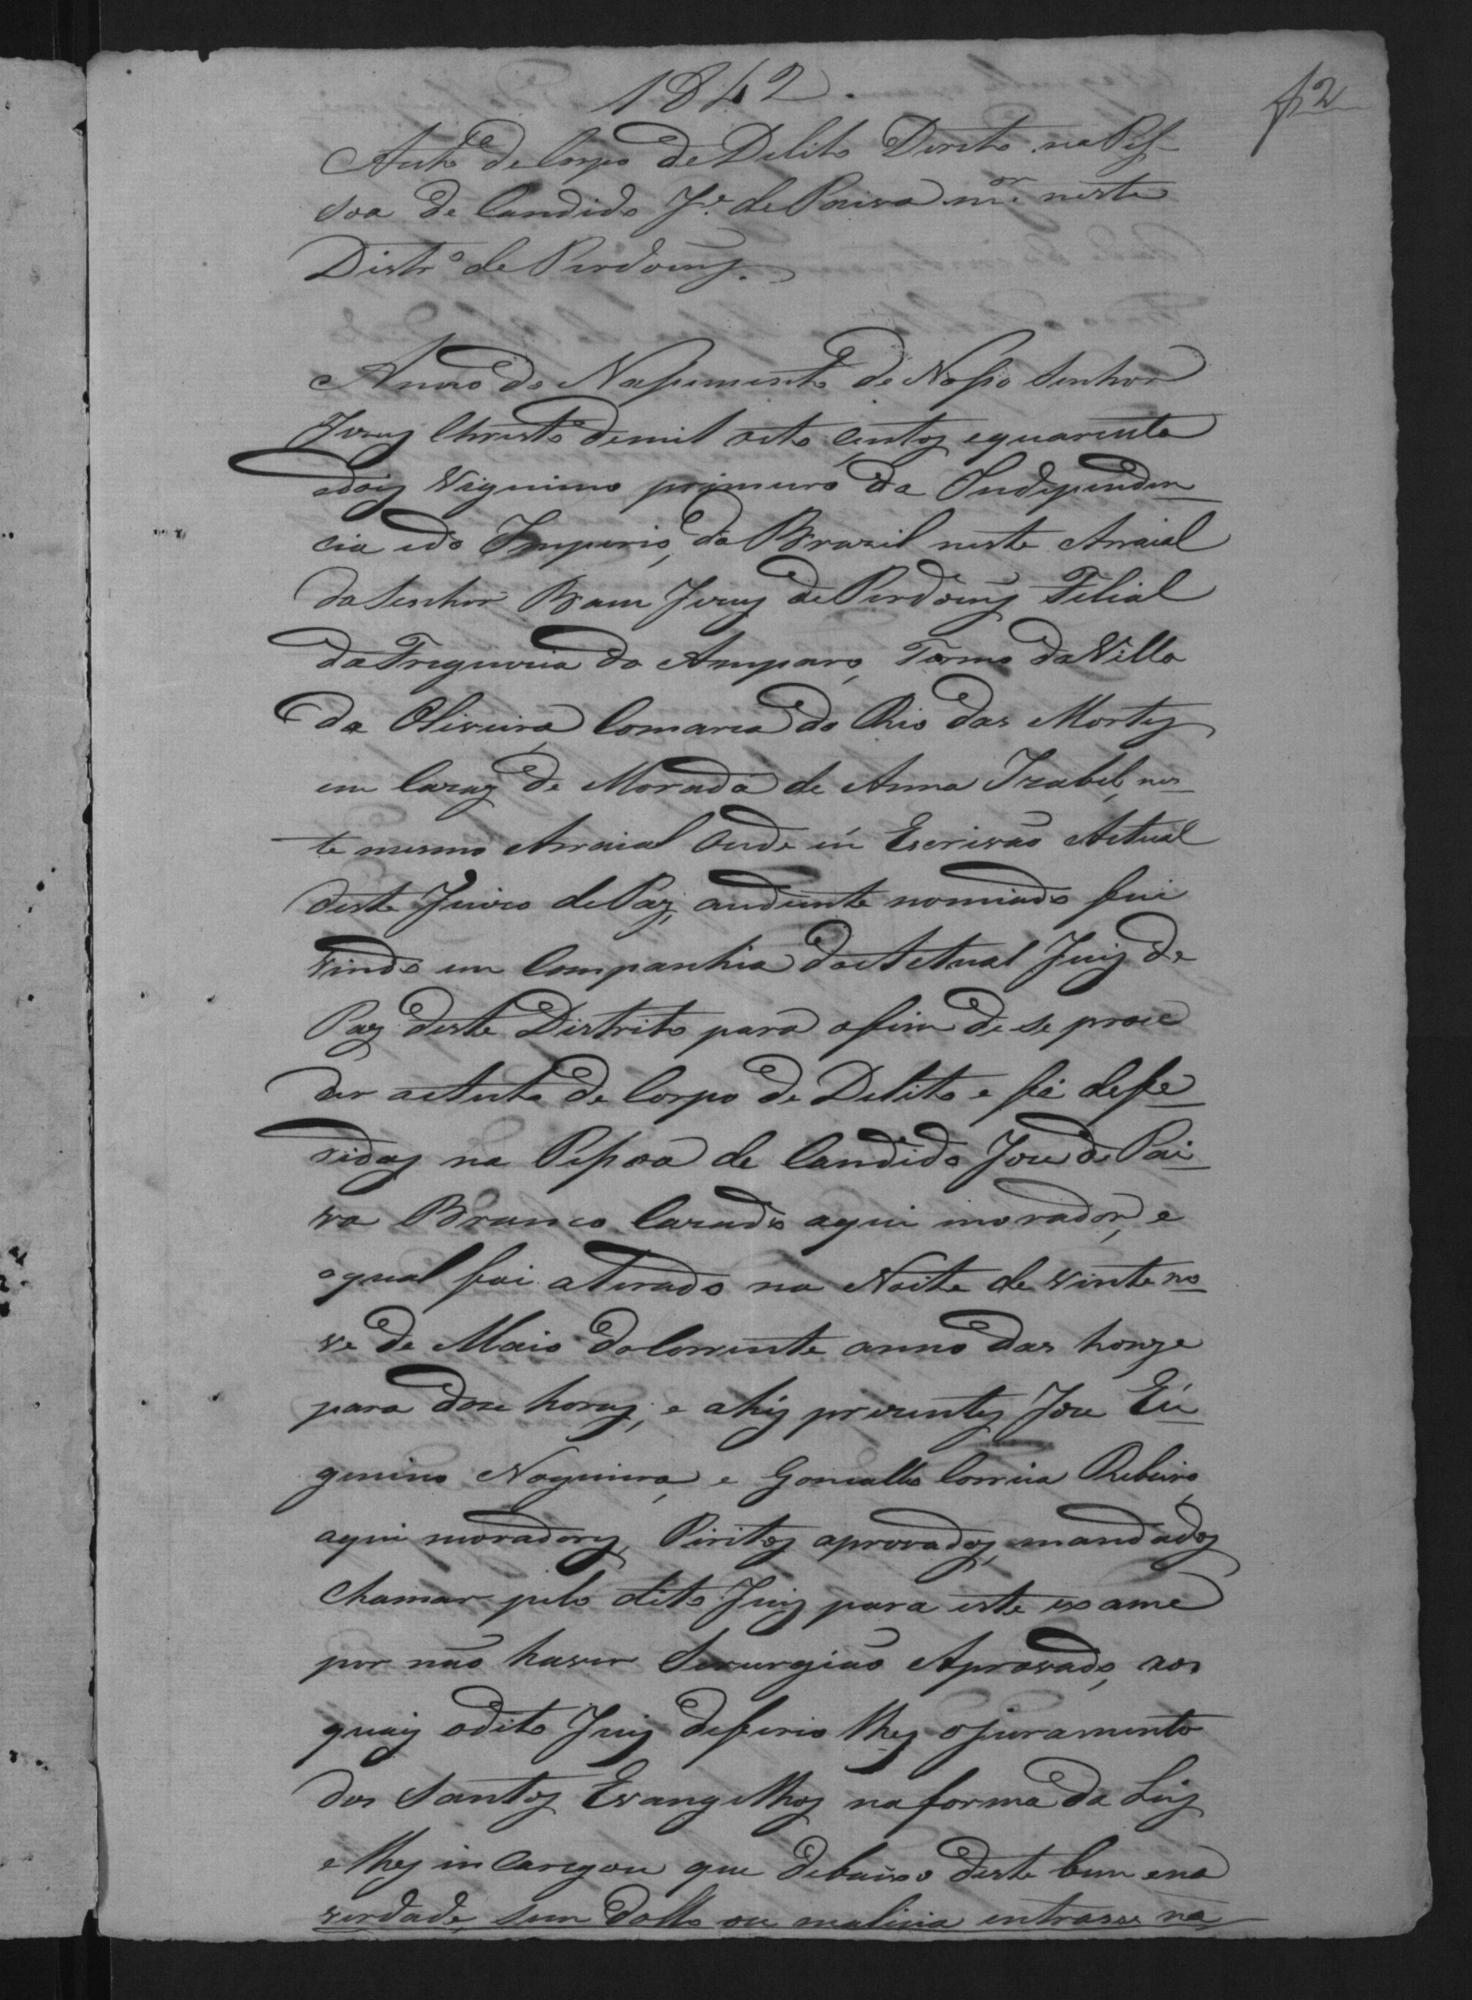 1842.
f 2
Auto de Corpo de Delito Direito na Pes-
soa de Candido Je. de Paiva mor. neste
Distro. de Perdoens.
Anno do Nascimento de Nosso Senhor
Jezus Christo de mil oito centos e quarenta
e dois Vigecimo primeiro da Independen-
cia e do Imperio, do Brazil neste Arraial
do Senhor Bom Jezus de Perdoens Filial
da Freguezia do Amparo, Termo da Villa
da Oliveira, Comarca do Rio das Mortes
em Cazas de Morada de Anna Izabel, nes-
te mesmo Arraial Onde eu Escrivão Actual
deste Juizo de Paz, audiante nomiado fui
vindo em Companhia do Actual Juiz de
Paz deste Distrito para o fim de se proce
der a Auto de Corpo de Delito e fé de fe-
ridas na Pessoa de Candido Joze de Pai-
va Branco Cazado aqui morador, e
o qual foi atirado na Noite de vinte no-
ve de Maio do Corrente anno das honze
para doze horas, e ahi prezentes Joze Eu-
genino Nogueira, e Goncallo Correia Ribeiro,
aqui moradores, Piritos aprovados, mandados
chamar pelo dito Juiz para este exame
por não haver Serurgião Aprovado, aos
quais o dito Juiz deferio lhes o juramento
dos Santos Evangelhos na forma da Lei
e lhes in caregou que debaixo deste bem e na
verdade, sem dollo ou malicia entrasse na